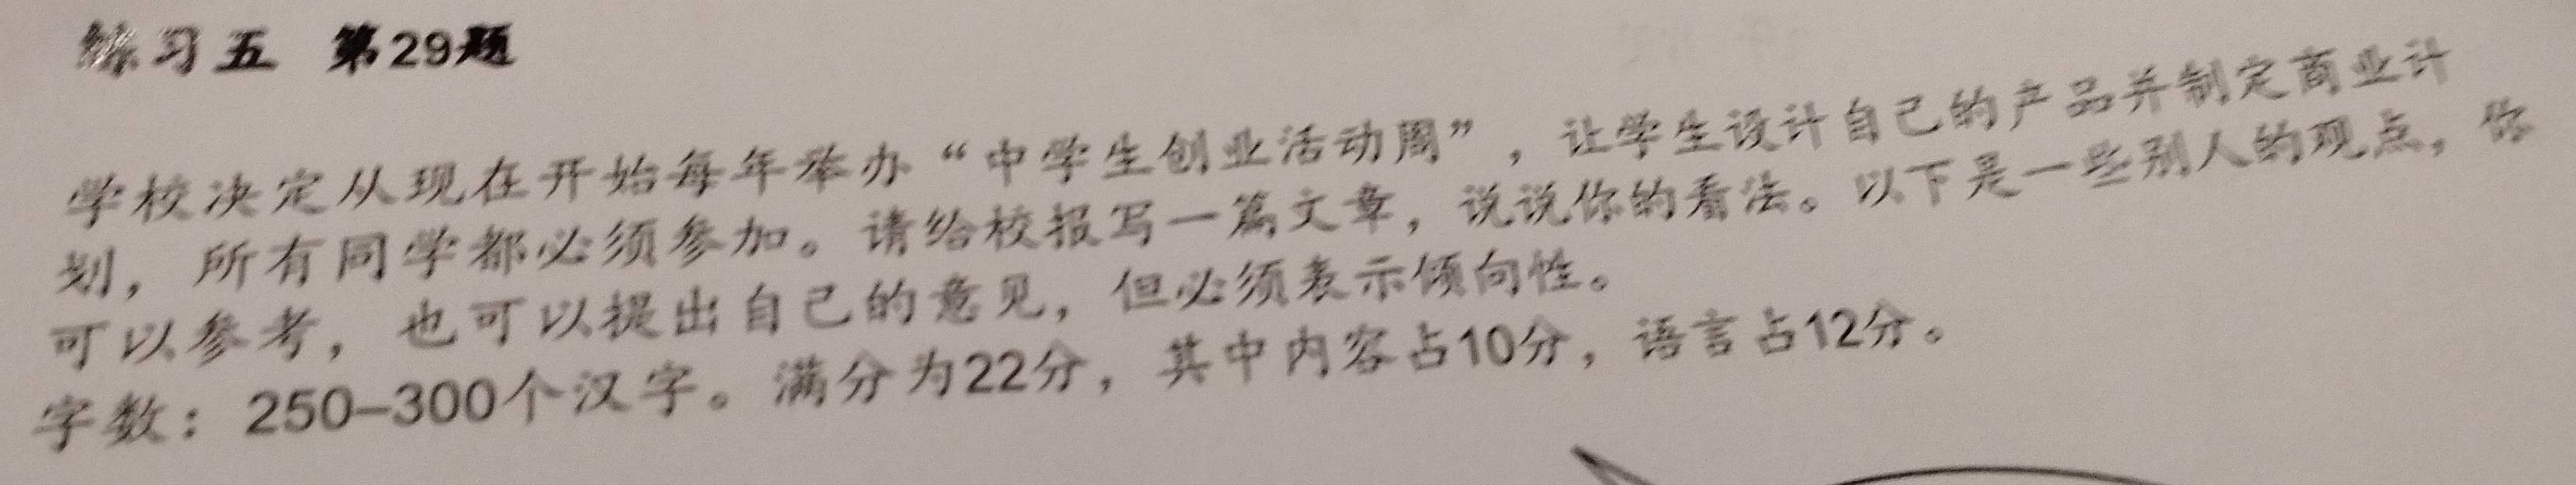 练习五 第29题
学校决定从现在开始每年举办“中学生创业活动周”，让学生设计自己的产品并制定商业计
划，所有同学都必须参加。请给校报写一篇文章，说说你的看法。以下是一些别人的观点，你
可以参考，也可以提出自己的意见，但必须表示倾向性。
字数：250–300个汉字。满分为22分，其中内容占10分，语言占12分。